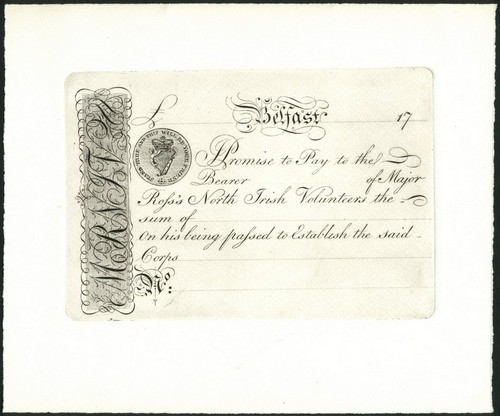 £ Belfast 17
I Promise to Pay to the
Bearer of Major
Ross's North Irish Volunteers the
sum of
On his being passed to Establish the said
Corps
No.
M.R.N.I.V.